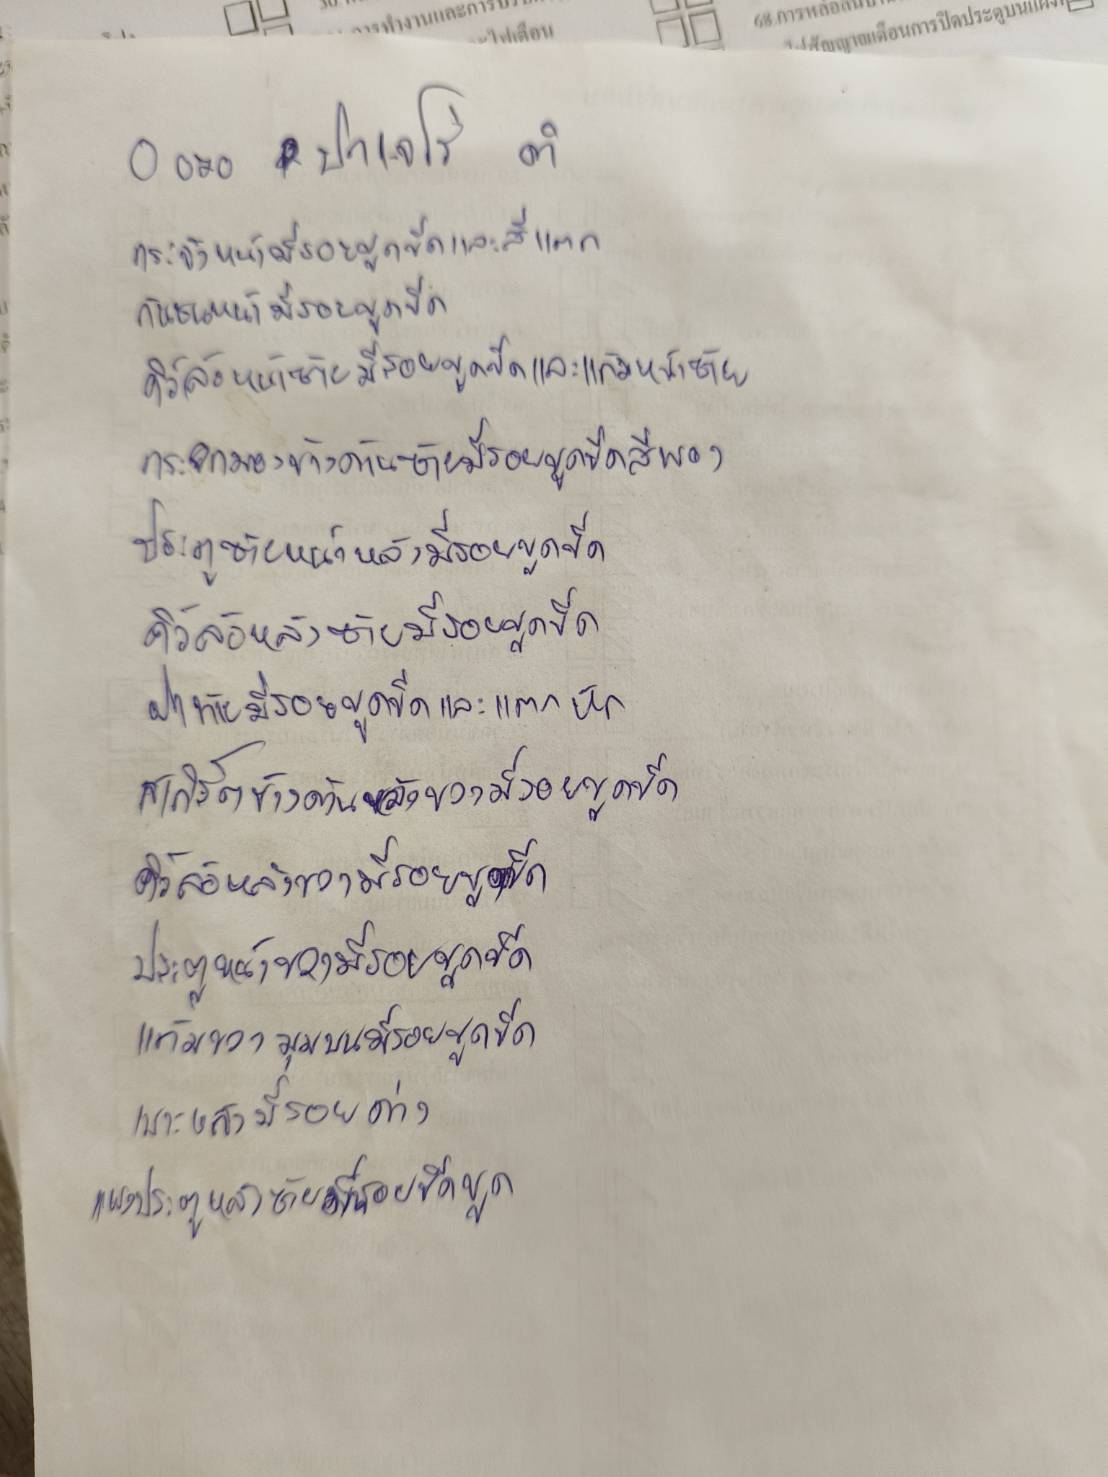 การทำงานและการปรับ
ไฟเตือน
68.การหล่อลื่นบาน
ไฟสัญญาณเตือนการปิดประตูบนแผง
ปาเจโร่ ดำ
กระจังหน้ามีรอยขูดขีดและสีแตก
กันชนหน้ามีรอยขูดขีด
คิ้วล้อหน้าซ้ายมีรอยขูดขีดและแก้มหน้าซ้าย
กระจกมองข้างด้านซ้ายมีรอยขูดขีดสีพอง
ประตูซ้ายหน้าหลังมีรอยขูดขีด
คิ้วล้อหลังซ้ายมีรอยขูดขีด
ฝาท้ายมีรอยขูดขีดและแตกหัก
สเกิร์ตข้างด้านหลังขวามีรอยขูดขีด
คิ้วล้อหลังขวามีรอยขูดขีด
ประตูหน้าขวามีรอยขูดขีด
แก้มขวามุมบนมีรอยขูดขีด
เบาะหลังมีรอยด่าง
แผงประตูหลังซ้ายมีรอยขีดขูด